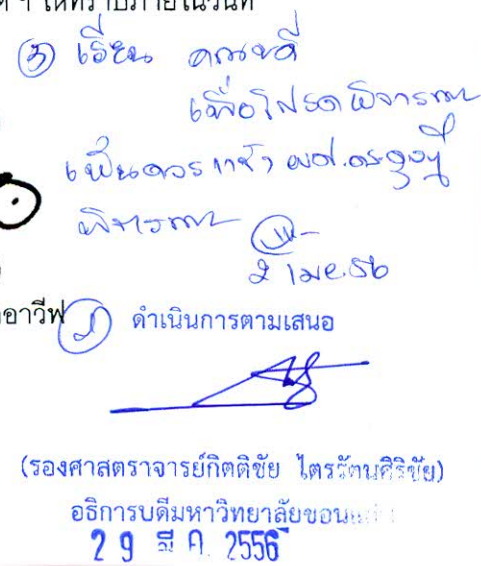 ๆ ให้ทราบภายในวันที่
③ เรียน คณบดี
เพื่อโปรดพิจารณา
เห็นควรแจ้ง ผศ.ดร.
พิจารณา
2 เม.ย.56
อาวีฟ
② ดำเนินการตามเสนอ
(รองศาสตราจารย์กิตติชัย ไตรรัตนศิริชัย)
อธิการบดีมหาวิทยาลัยขอนแก่น
29 มี.ค. 2556